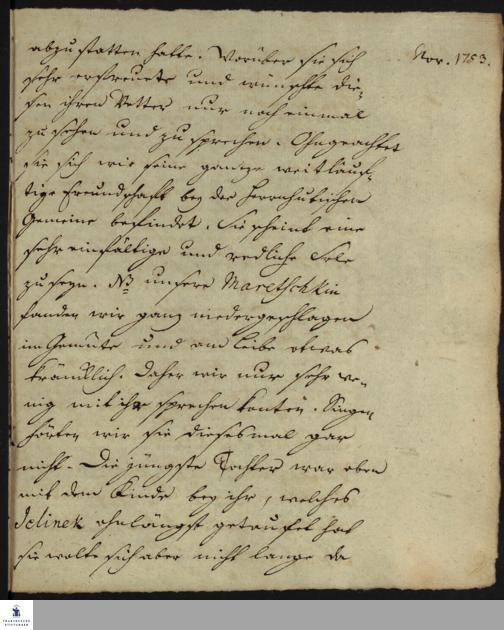 Nov. 1753.
abzustatten hatte. Worüber sie sich
sehr erfreuete und wünschte die-
sen ihren Vetter nur noch einmal
zu sehen und zu sprechen. Ohngeachtet
sie sich wie seine gantze weitläuf-
tige Freundschaft bey der Herrnhutischen
Gemeine befindet. Sie scheint eine
sehr einfältige und redliche Sele
zu seyn. NB unsere Maretschkin
fanden wir ganz niedergeschlagen
im Gemüte und am Leibe etwas
kränklich. Daher wir nur sehr we-
nig mit ihr sprechen konten. Singen
hörten wir sie dieses mal gar
nicht. Die jüngste Tochter war eben
mit dem Kinde bey ihr, welches
Jelinek ohnlängst getauft hat
sie wolte sich aber nicht lange da
FRANCKESCHE
STIFTUNGEN